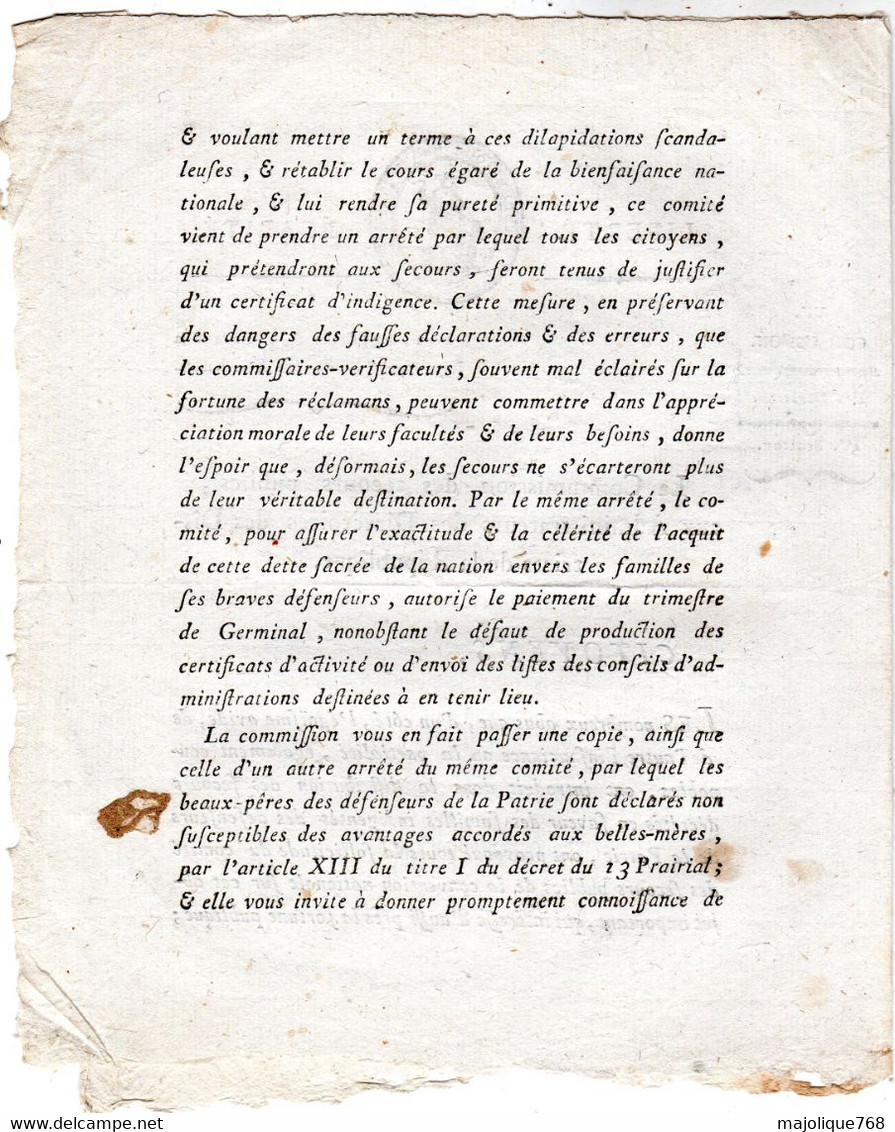 & voulant mettre un terme à ces dilapidations ſcanda-
leuſes , & rétablir le cours égaré de la bienfaiſance na-
tionale , & lui rendre ſa pureté primitive , ce comité
vient de prendre un arrêté par lequel tous les citoyens ,
qui prétendront aux ſecours , ſeront tenus de juſtifier
d'un certificat d'indigence. Cette meſure , en préſervant
des dangers des fauſſes déclarations & des erreurs , que
les commiſſaires-verificateurs , ſouvent mal éclairés ſur la
fortune des réclamans , peuvent commettre dans l'appré-
ciation morale de leurs facultés & de leurs beſoins , donne
l'eſpoir que , déſormais , les ſecours ne s'écarteront plus
de leur véritable deſtination. Par le même arrêté , le co-
mité , pour aſſurer l'exactitude & la célérité de l'acquit
de cette dette ſacrée de la nation envers les familles de
ſes braves défenſeurs , autoriſe le paiement du trimeſtre
de Germinal , nonobſtant le défaut de production des
certificats d'activité ou d'envoi des liſtes des conſeils d'ad-
miniſtrations deſtinées à en tenir lieu.
La commiſſion vous en fait paſſer une copie , ainſi que
celle d'un autre arrêté du même comité , par lequel les
beaux-pères des défenſeurs de la Patrie ſont déclarés non
ſuſceptibles des avantages accordés aux belles-mères ,
par l'article XIII du titre I du décret du 13 Prairial ;
& elle vous invite à donner promptement connoiſſance de
majolique768